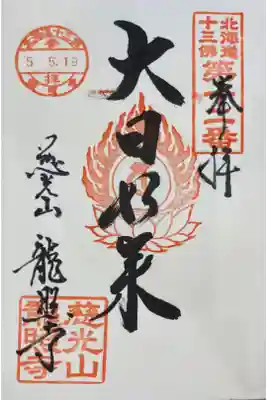 北海道
十三佛
第十二番
奉拝
大日如来
5.5.19
慈光山
龍照寺
慈光山
龍照寺